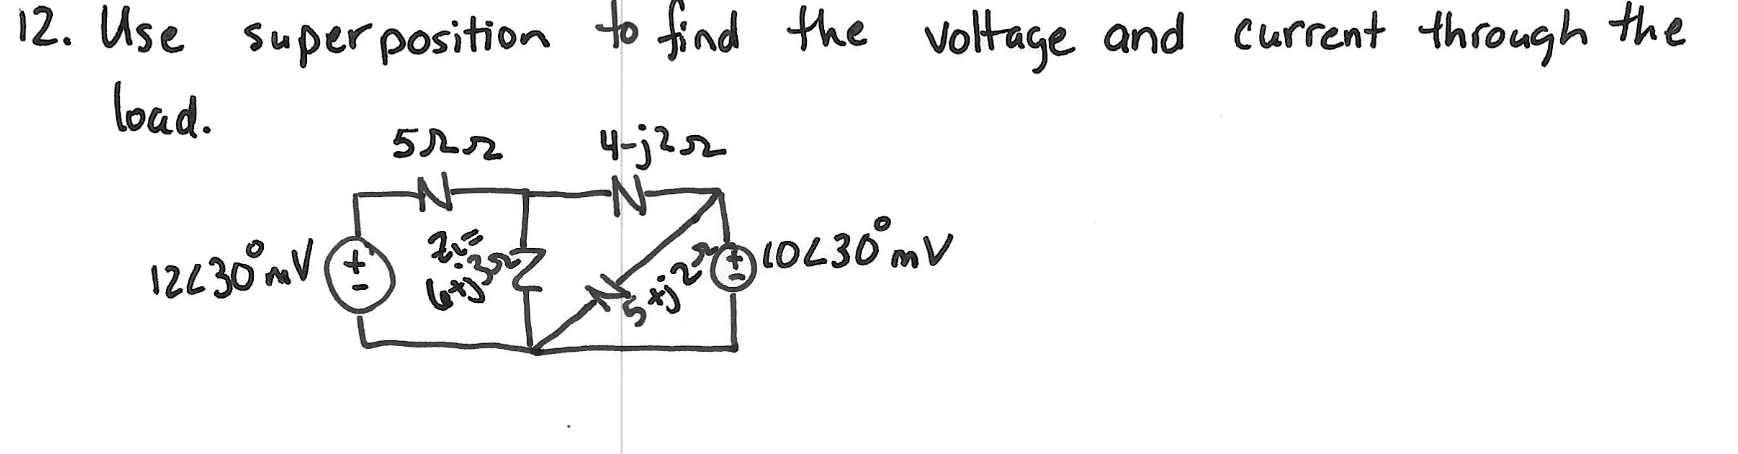 12. Use superposition to find the voltage and current through the
load.
5ΩΩ
4-j2Ω
12∠30° mV
+
-
ZL=
6+j3Ω
5+j2Ω
+
-
10∠30° mV